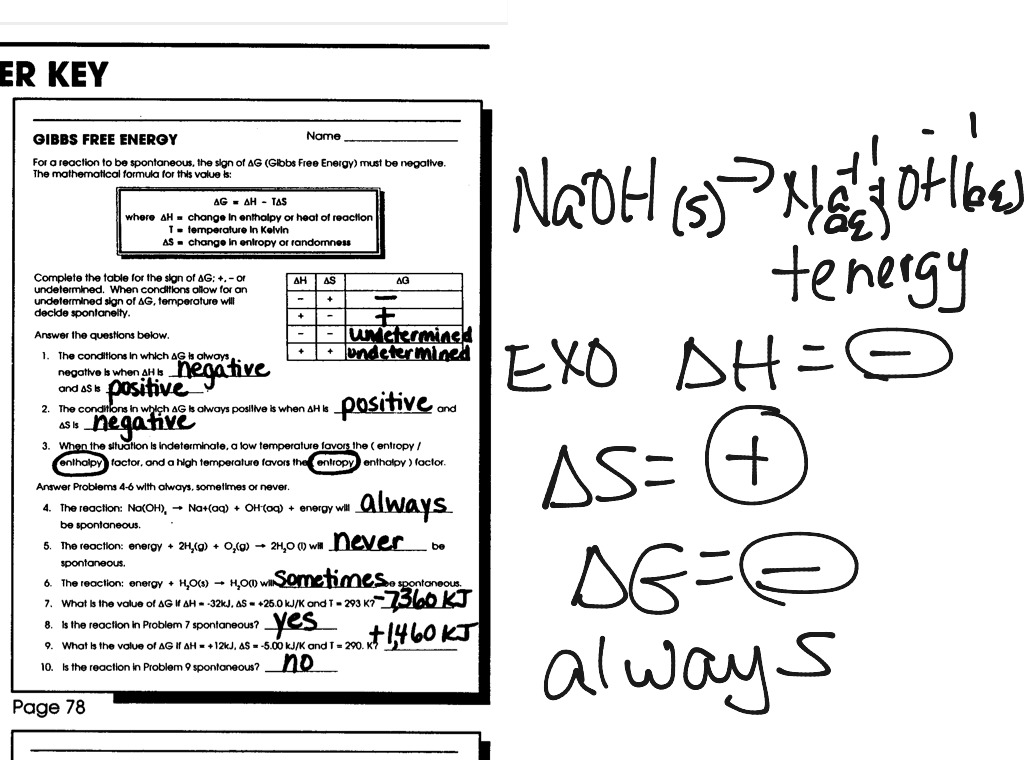 ER KEY
GIBBS FREE ENERGY
Name
For a reaction to be spontaneous, the sign of ΔG (Gibbs Free Energy) must be negative.
The mathematical formula for this value is:
ΔG = ΔH - TΔS
where ΔH = change in enthalpy or heat of reaction
T = temperature in Kelvin
ΔS = change in entropy or randomness
Complete the table for the sign of ΔG; +, – or
undetermined. When conditions allow for an
undetermined sign of ΔG, temperature will
decide spontaneity.
ΔH ΔS ΔG
– + –
+ – +
– – undetermined
+ + undetermined
Answer the questions below.
1. The conditions in which ΔG is always
negative is when ΔH is negative
and ΔS is positive
2. The conditions in which ΔG is always positive is when ΔH is positive and
ΔS is negative
3. When the situation is indeterminate, a low temperature favors the ( entropy /
enthalpy ) factor, and a high temperature favors the ( entropy / enthalpy ) factor.
Answer Problems 4-6 with always, sometimes or never.
4. The reaction: Na(OH)s → Na+(aq) + OH-(aq) + energy will always
be spontaneous.
5. The reaction: energy + 2H₂(g) + O₂(g) → 2H₂O (l) will never be
spontaneous.
6. The reaction: energy + H₂O(s) → H₂O(l) will Sometimes be spontaneous.
7. What is the value of ΔG if ΔH = -32kJ, ΔS = +25.0 kJ/K and T = 293 K? -7,360 KJ
8. Is the reaction in Problem 7 spontaneous? yes
9. What is the value of ΔG if ΔH = +12kJ, ΔS = -5.00 kJ/K and T = 290. K? +1,460 KJ
10. Is the reaction in Problem 9 spontaneous? no
Page 78
NaOH (s) → Na+1 (aq) + OH-1 (aq)
+energy
EXO ΔH = –
ΔS = +
ΔG = –
always